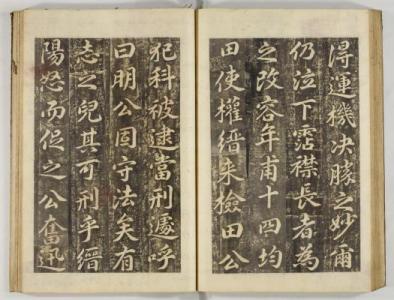 淂運機决勝之妙爾
仍泣下霑襟長者為
之改容年甫十四均
田使權縉来檢田公
犯科被逮當刑遽呼
曰明公固守法矣有
志之兒其可刑乎縉
陽怒而促之公奮迅